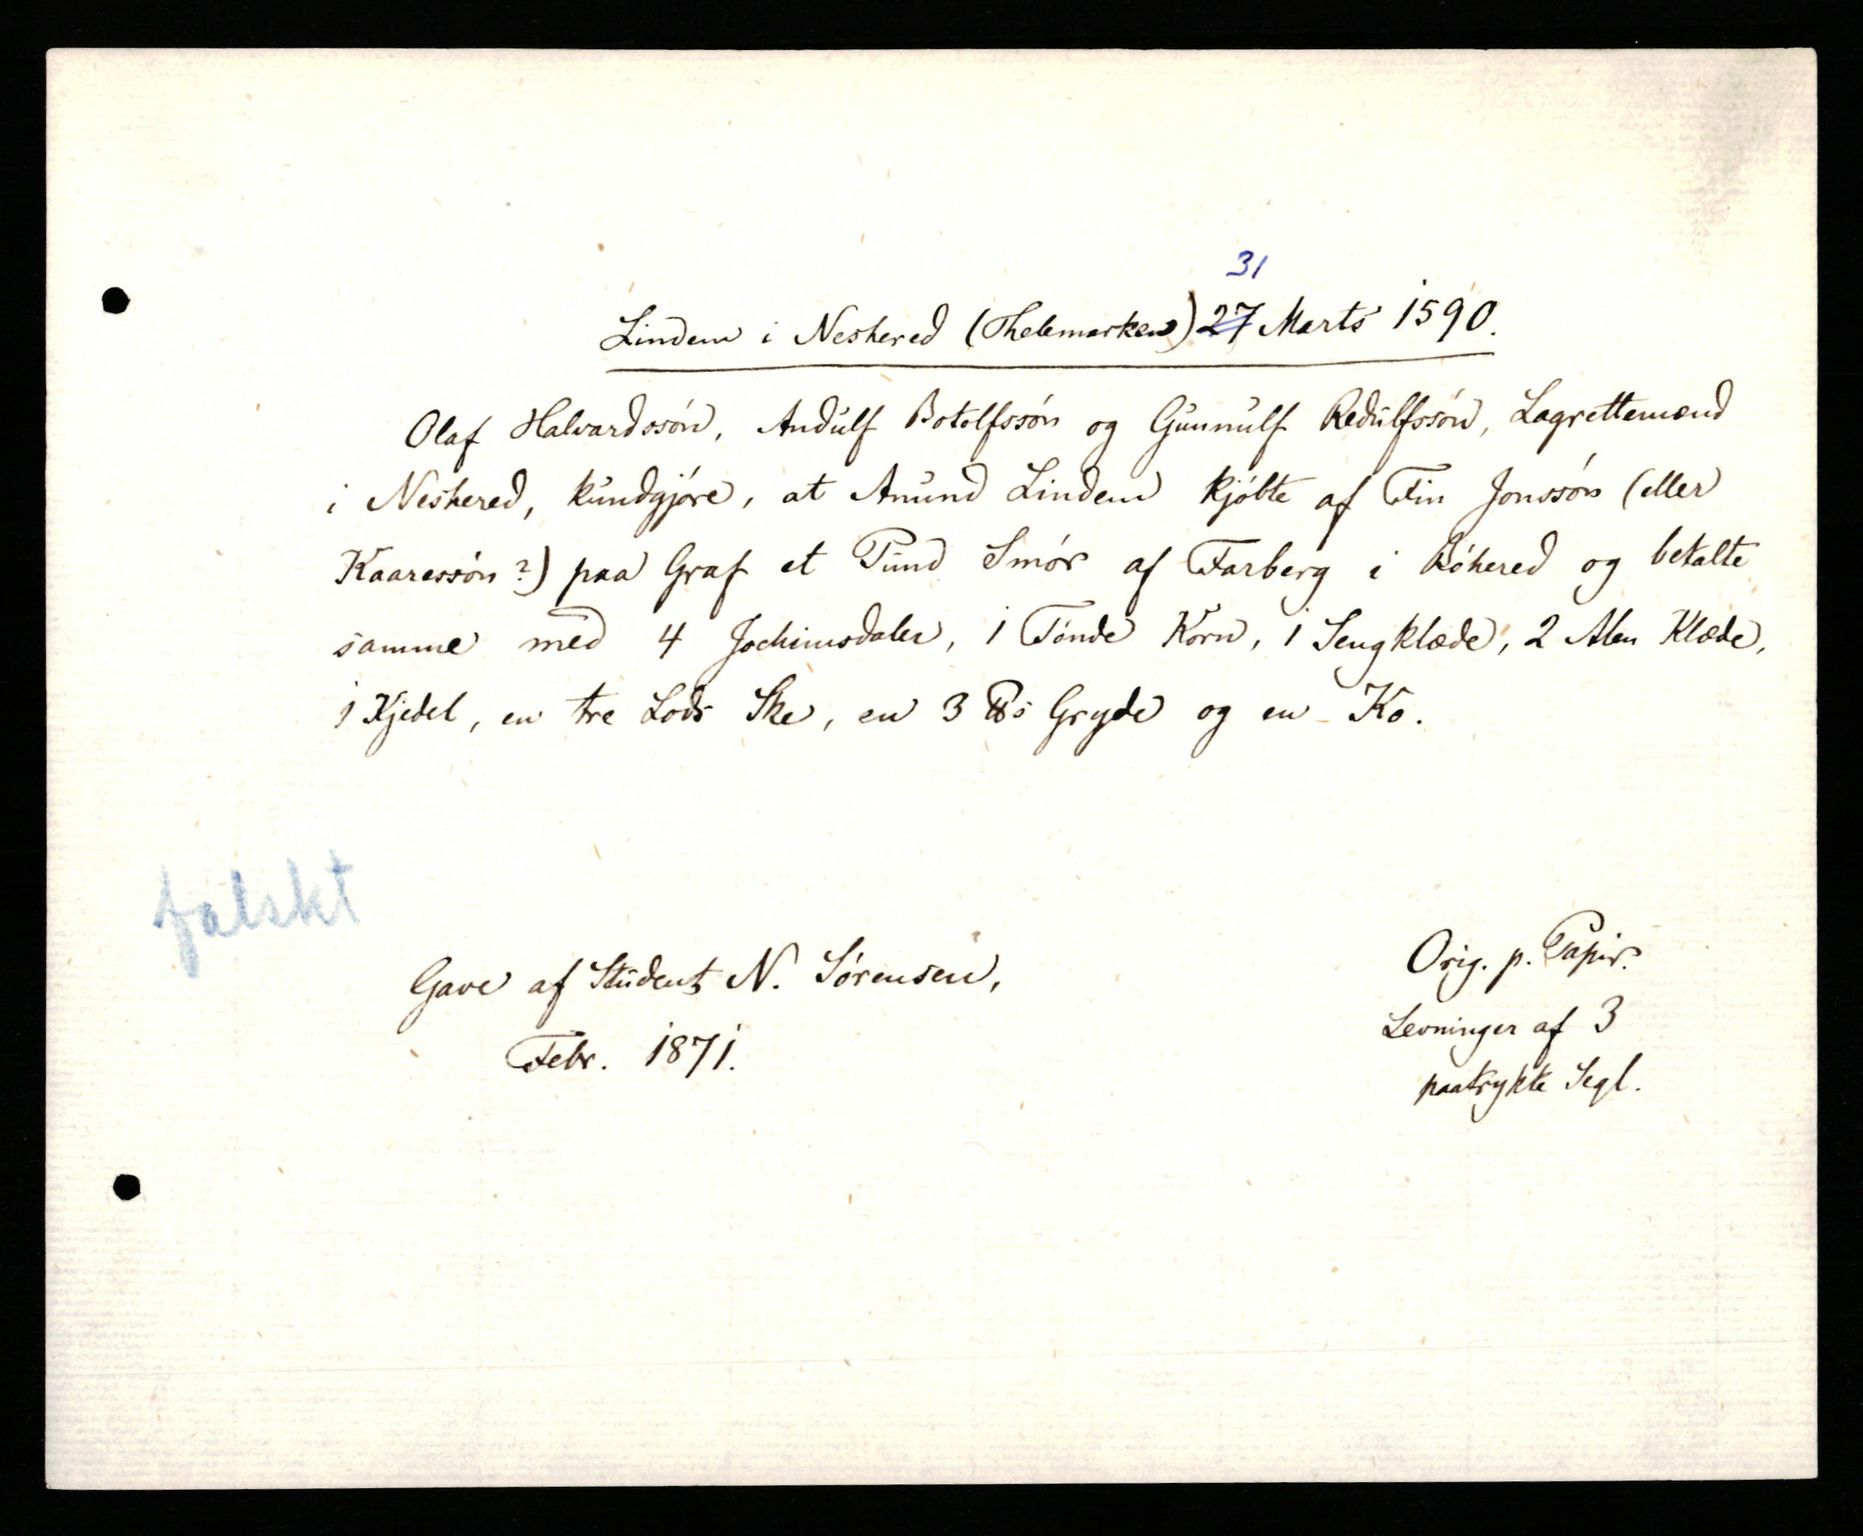 31
Lindem i Neshered (Thelemarken) 27 Marts 1590.
Olaf Halvardssøn, Andulf Botolfssøn og Gunnulf Redulfssøn, Lagrettemænd
i Neshered, kundgjøre, at Anund Lindem kjøbte af Fin Jonssøn (eller
Kaaressøn?) paa Graf et Pund Smør af Farberg i Bøhered og betalte
samme med 4 Jochimsdaler, 1 Tønde Korn, 1 Sengklæde, 2 Alen Klæde,
1 Kjedel, en tre Lods Ske, en 3 ℔s Gryde og en Ko.
falskt
Gave af Student N. Sørensen,
Febr. 1871.
Orig. p. Papir.
Levninger af 3
paatrykte Segl.